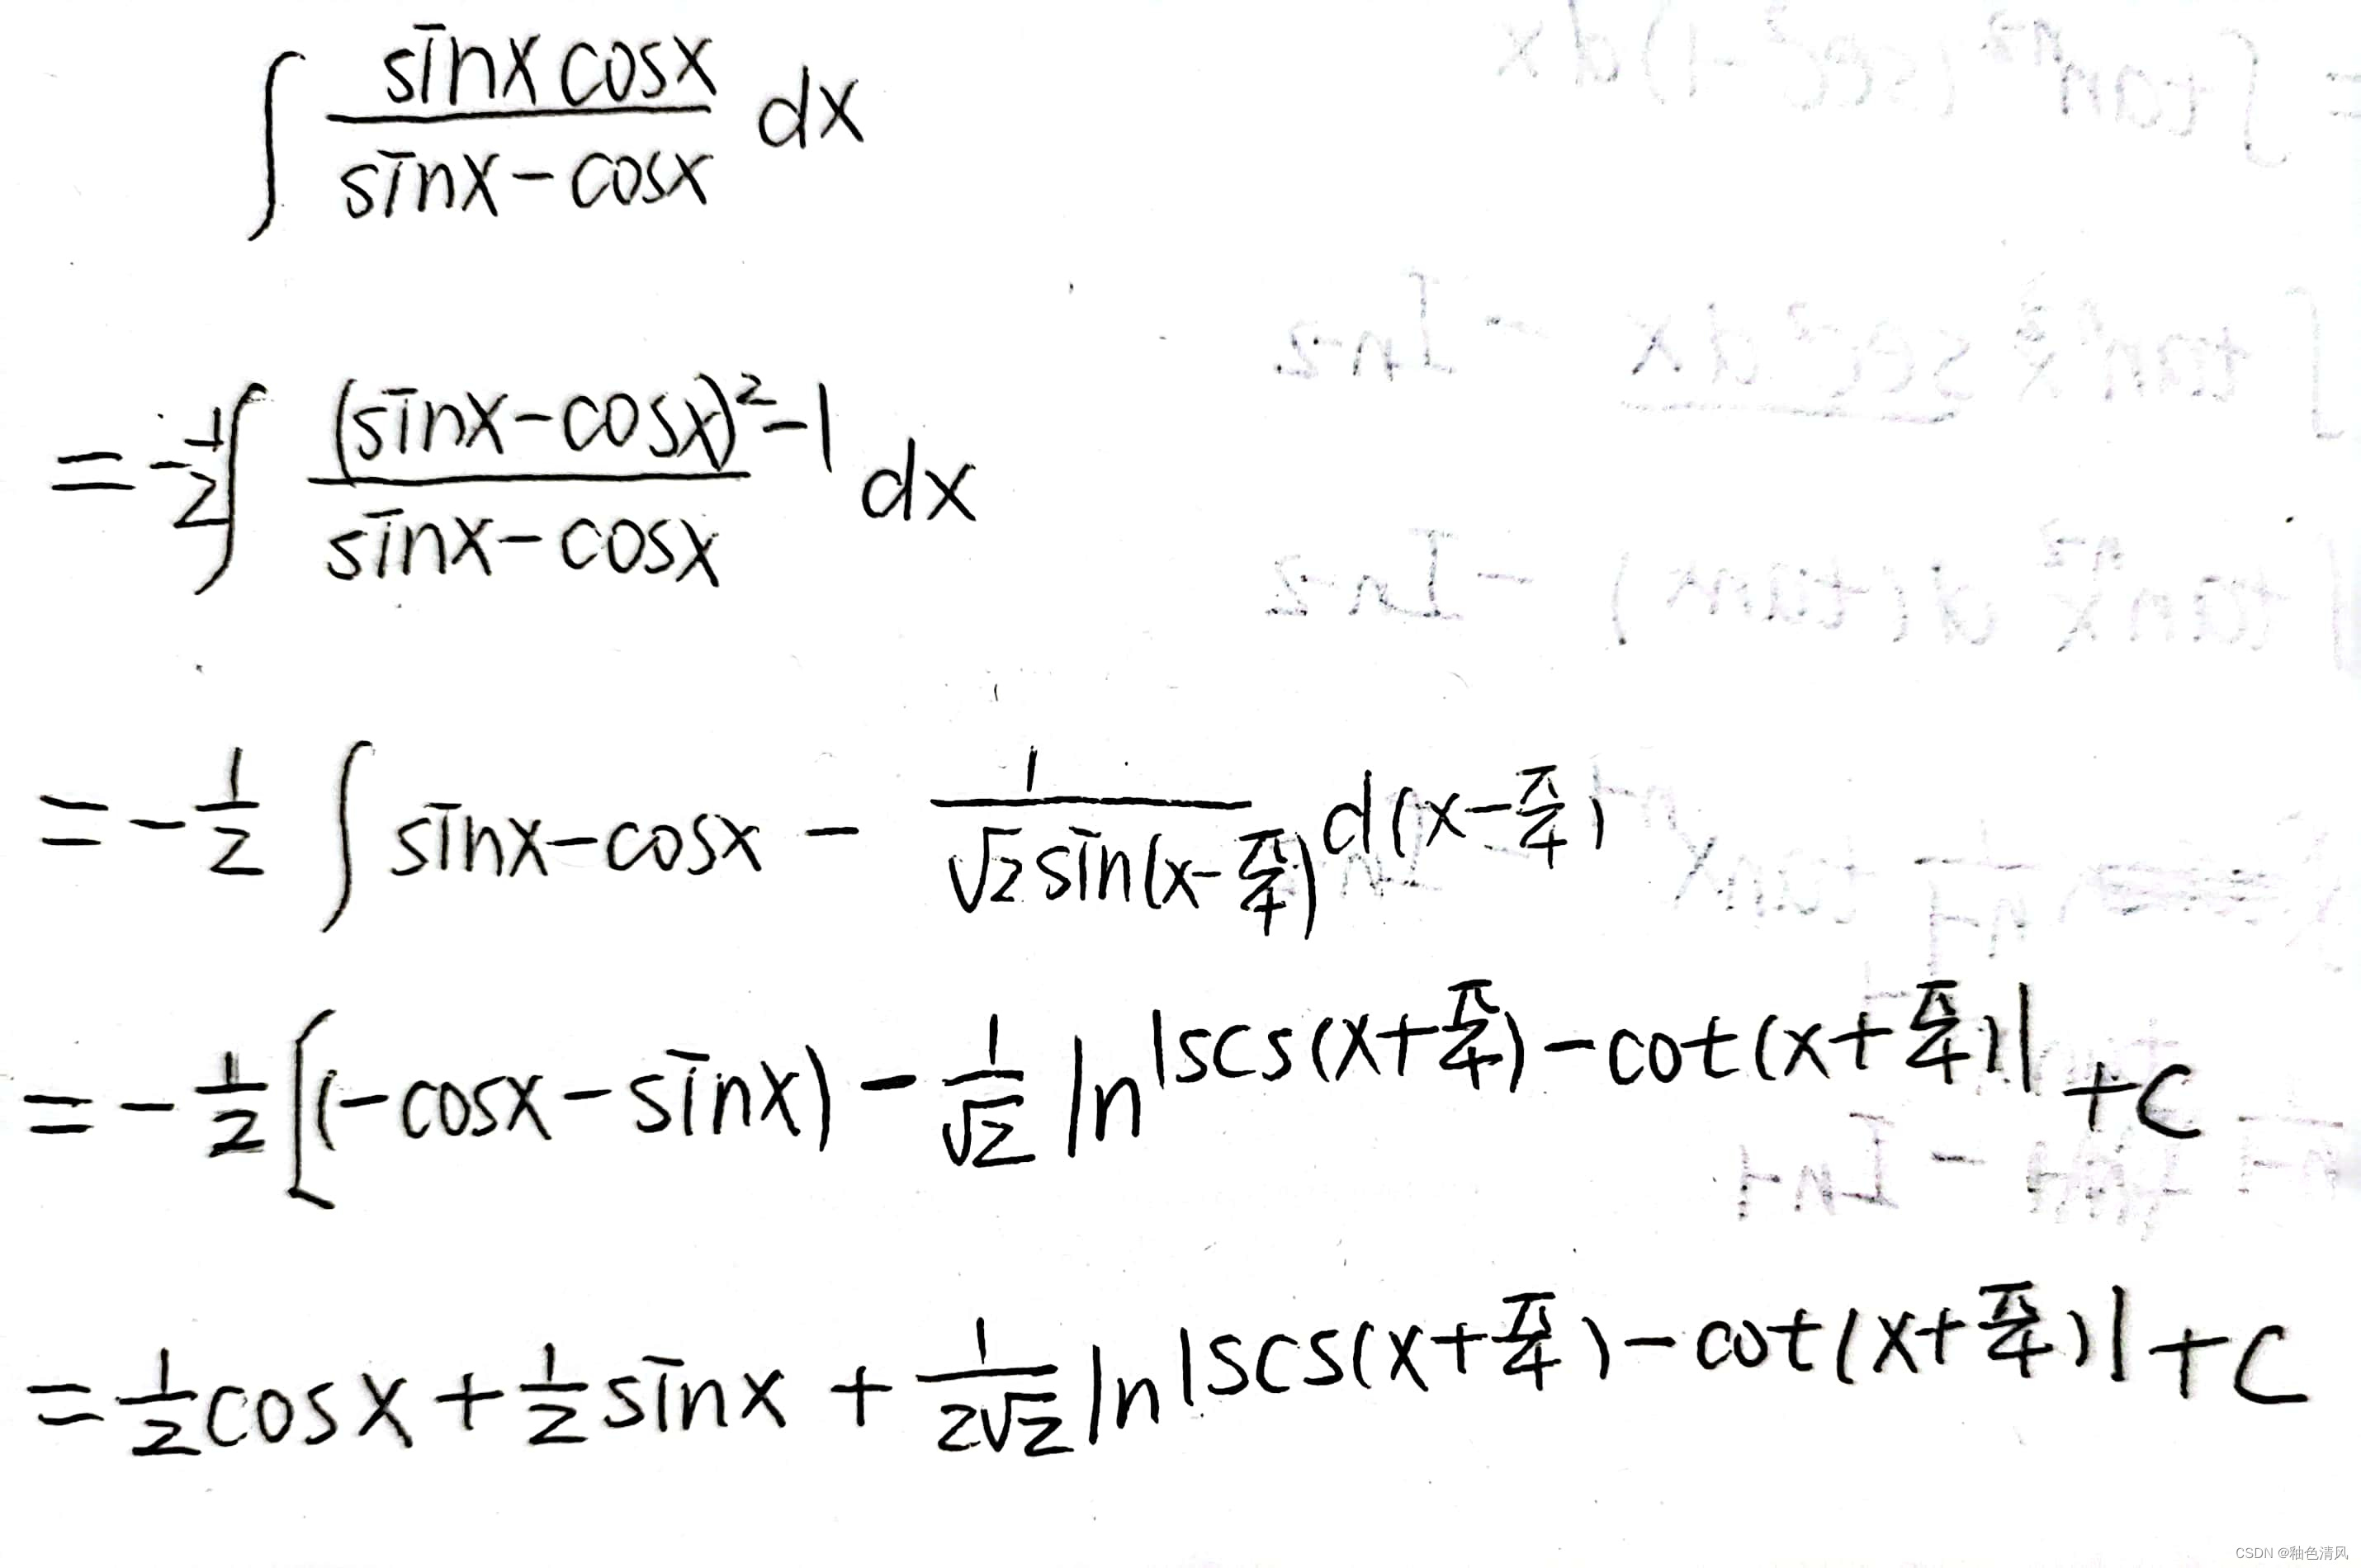 ∫ sinx cosx / (sinx - cosx) dx
= -1/2 ∫ ((sinx - cosx)² - 1) / (sinx - cosx) dx
= -1/2 ∫ sinx - cosx - 1 / (√2 sin(x - π/4)) d(x - π/4)
= -1/2 [(-cosx - sinx) - 1/√2 ln|scs(x + π/4) - cot(x + π/4)| + C
= 1/2 cosx + 1/2 sinx + 1/(2√2) ln|scs(x + π/4) - cot(x + π/4)| + C
CSDN @釉色清风